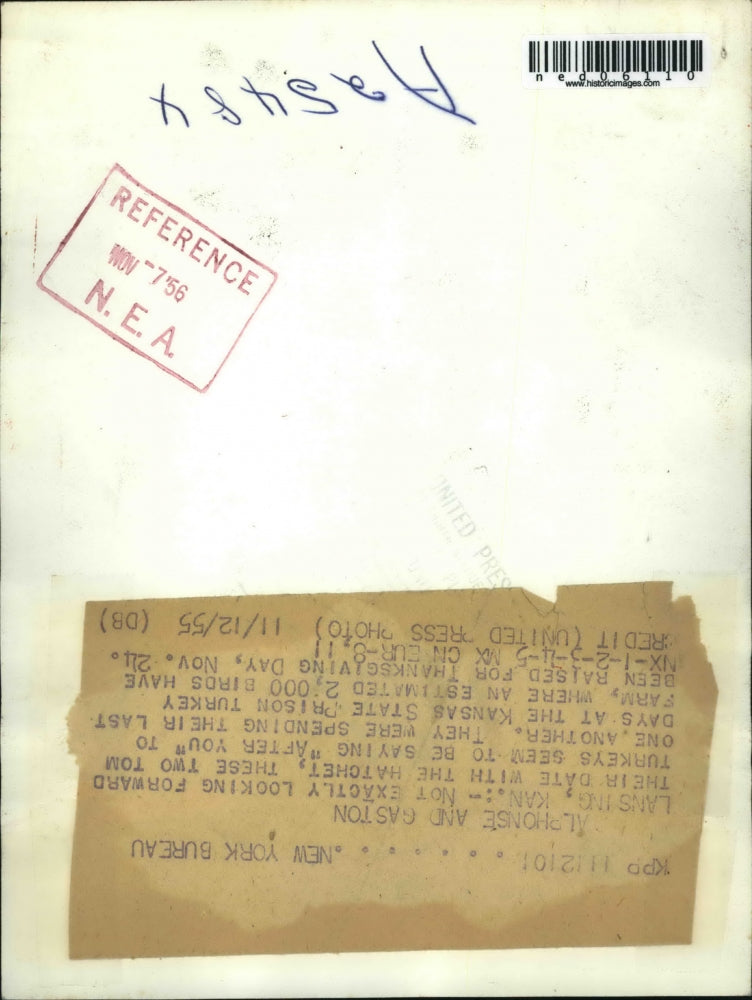 ned06110
www.historicimages.com
A25484
REFERENCE
NOV -7'56
N. E. A.
UNITED PRESS
KPP 1112101 . . . . . . .NEW YORK BUREAU
ALPHONSE AND GASTON
LANSING, KAN.:- NOT EXACTLY LOOKING FORWARD
THEIR DATE WITH THE HATCHET, THESE TWO TOM
TURKEYS SEEM TO BE SAYING "AFTER YOU" TO
ONE ANOTHER. THEY WERE SPENDING THEIR LAST
DAYS AT THE KANSAS STATE PRISON TURKEY
FARM, WHERE AN ESTIMATED 2,000 BIRDS HAVE
BEEN RAISED FOR THANKSGIVING DAY, NOV. 24.
NX-1-2-3-4-5 MX CN EUR-8,11
CREDIT (UNITED PRESS PHOTO) 11/12/55 (DB)